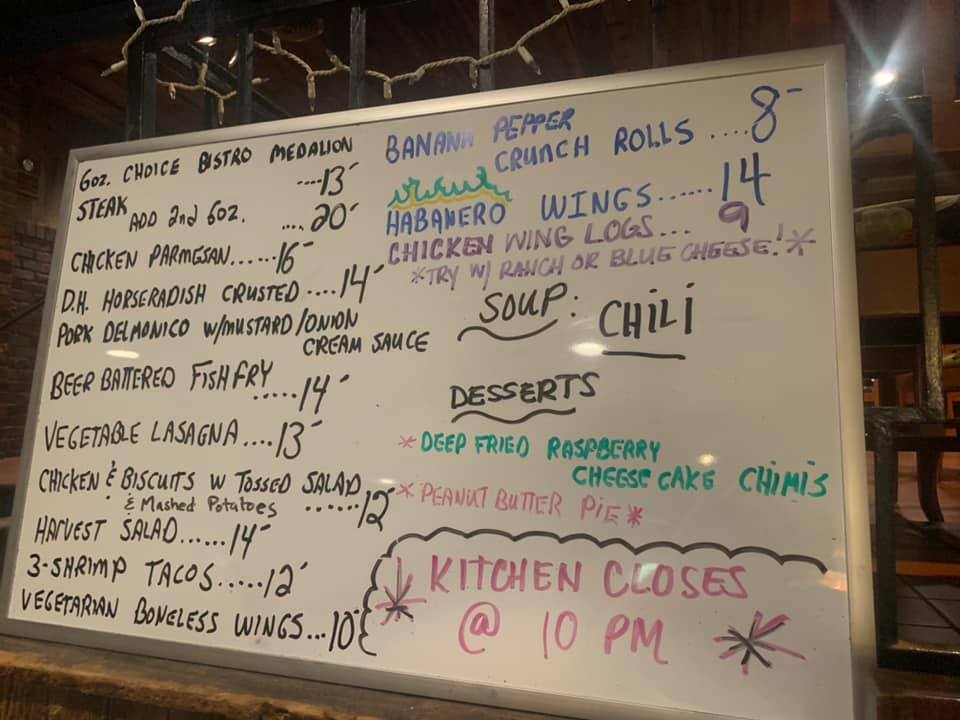 6oz. CHOICE BISTRO MEDALION
STEAK ....13-
ADD 2nd 6oz. ....20-
CHICKEN PARMESAN......16-
D.H. HORSERADISH CRUSTED ....14-
PORK DELMONICO W/MUSTARD/ONION
CREAM SAUCE
BEER BATTERED FISH FRY
.....14-
VEGETABLE LASAGNA....13-
CHICKEN & BISCUITS W TOSSED SALAD
& Mashed Potatoes ......12-
HARVEST SALAD......14-
3-SHRIMP TACOS.....12-
VEGETARIAN BONELESS WINGS...10-
BANANA PEPPER
CRUNCH ROLLS ....8-
HABANERO WINGS......14
CHICKEN WING LOGS... 9
*TRY W/ RANCH OR BLUE CHEESE!*
SOUP: CHILI
DESSERTS
* DEEP FRIED RASPBERRY
CHEESE CAKE CHIMIS
* PEANUT BUTTER PIE *
* KITCHEN CLOSES
@ 10 PM *